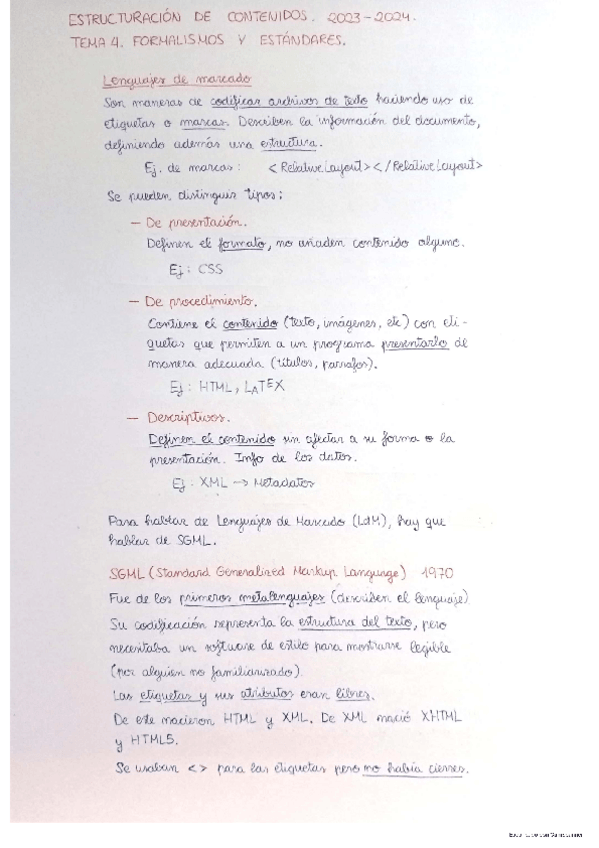 ESTRUCTURACIÓN DE CONTENIDOS. 2023-2024.
TEMA 4. FORMALISMOS Y ESTÁNDARES.
Lenguajes de marcado
Son maneras de codificar archivos de texto haciendo uso de
etiquetas o marcas. Describen la información del documento,
definiendo además una estructura.
Ej. de marcas: <RelativeLayout></RelativeLayout>
Se pueden distinguir tipos:
- De presentación.
Definen el formato, no añaden contenido alguno.
Ej: CSS
- De procedimiento.
Contiene el contenido (texto, imágenes, etc) con eti-
quetas que permiten a un programa presentarlo de
manera adecuada (títulos, parrafos).
Ej: HTML, LATEX
- Descriptivos.
Definen el contenido sin afectar a su forma o la
presentación. Info de los datos.
Ej: XML -> Metadatos
Para hablar de Lenguajes de Marcado (LdM), hay que
hablar de SGML.
SGML (Standard Generalized Markup Language) 1970
Fue de los primeros metalenguajes (describen el lenguaje)
Su codificación representa la estructura del texto, pero
necesitaba un software de estilo para mostrarse legible
(por alguien no familiarizado)
Las etiquetas y sus atributos eran libres.
De este nacieron HTML y XML. De XML nació XHTML
y HTML5.
Se usaban <> para las etiquetas pero no había cierres.